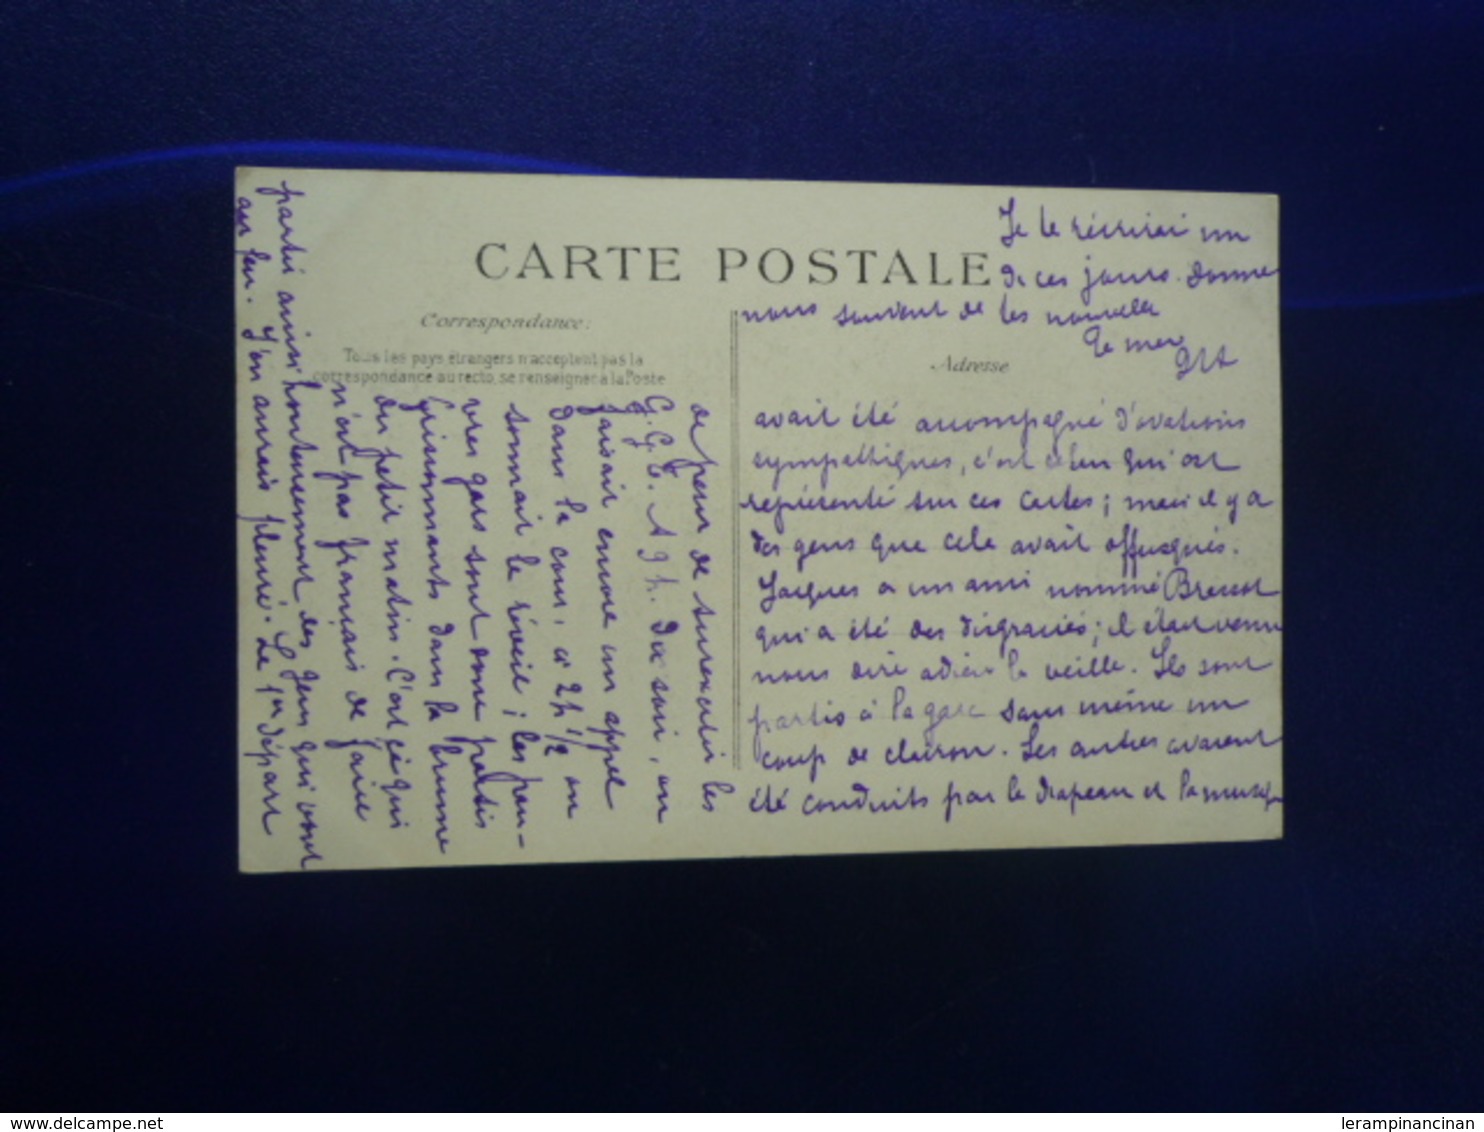 CARTE POSTALE
Correspondance:
Tous les pays étrangers n'acceptent pas la
correspondance au recto, se renseigner à la Poste
Adresse
de peur de surexciter les
Dix soir, on
faisait encore un appel
dans la cour, à 2h 1/2 on
sonnait le réveil ; les pau-
vres gars sont donc partis
dans la brume
du petit matin. C'est ce qui
n'est pas français de faire
partir ainsi honteusement des gens qui vont
au feu. J'en aurais pleuré. Le 1er départ
avait été accompagné d'ovations
sympathiques, c'est celui qui est
représenté sur ces cartes ; mais il y a
des gens que cela avait offusqués.
Jacques a un ami nommé
qui a été des disgraciés ; il était venu
nous dire adieu la veille. Ils sont
partis à la gare sans même un
coup de clairon. Les autres avaient
été conduits par le drapeau et la musique
Je te récrirai un
de ces jours. Donne
nous souvent de tes nouvelles
delcampe.net
lerampinancinan